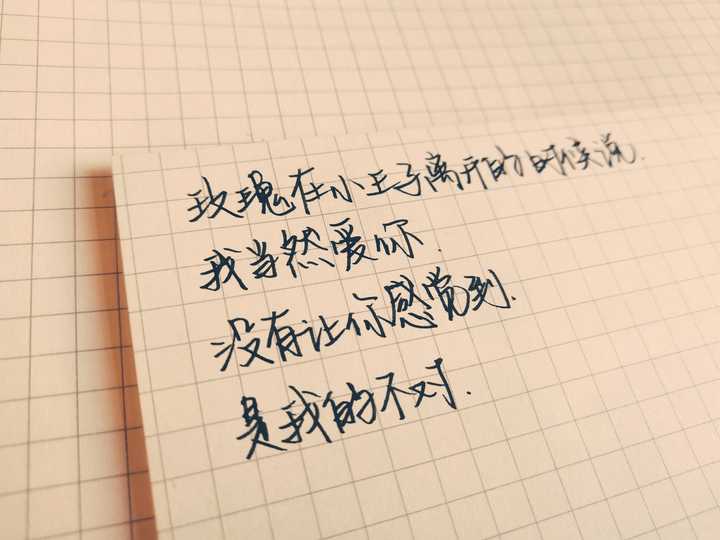 玫瑰在小王子离开的时候说.
我当然爱你.
没有让你感觉到.
是我的不对.